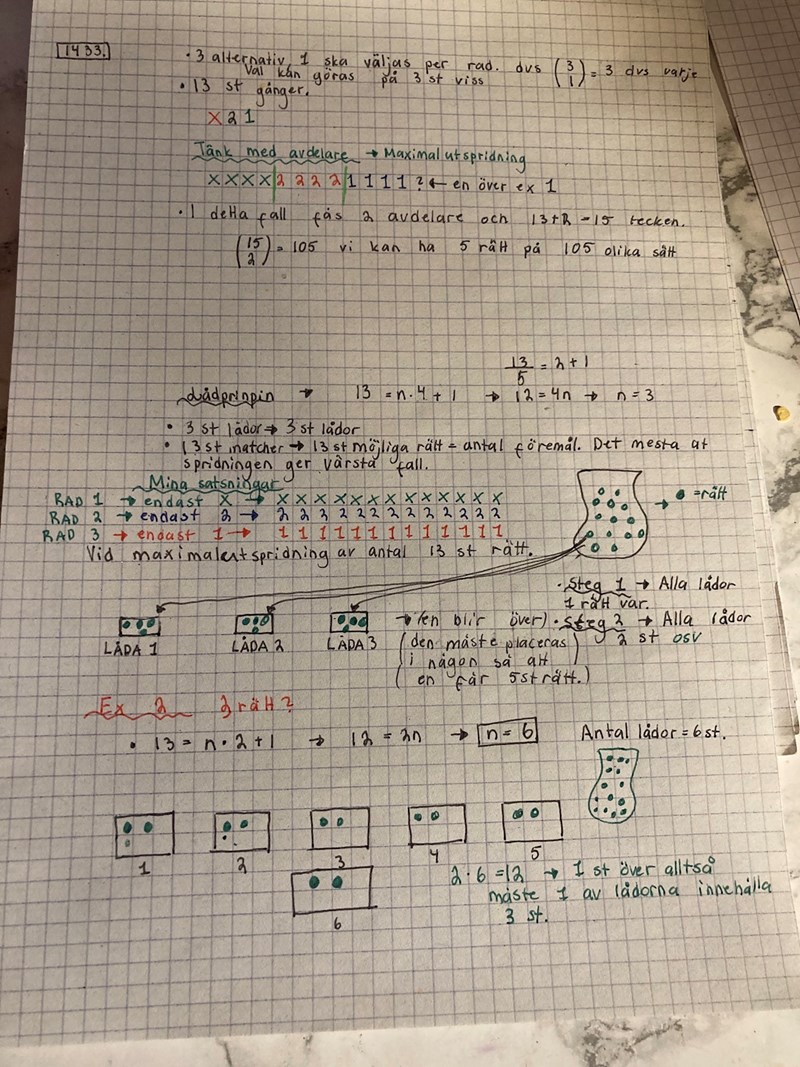 1433.
• 3 alternativ, 1 ska väljas per rad. dvs (3 1) = 3 dvs varje
val kan göras på 3 st viss
• 13 st gånger.
X 2 1
Tänk med avdelare → Maximal utspridning
XXXX|2222|1111? ← en över ex 1
• I detta fall fås 2 avdelare och 13+2=15 tecken.
(15 2) = 105 vi kan ha 5 rätt på 105 olika sätt
13/5 = 2+1
Lådprinpin → 13 = n·4+1 → 12=4n → n=3
• 3 st lådor → 3 st lådor
• 13 st matcher → 13 st möjliga rätt = antal föremål. Det mesta at
spridningen ger värsta fall.
Mina satsningar
RAD 1 → endast X → X X X X X X X X X X X X X
RAD 2 → endast 2 → 2 2 2 2 2 2 2 2 2 2 2 2 2
RAD 3 → endast 1 → 1 1 1 1 1 1 1 1 1 1 1 1 1
→ • = rätt
Vid maximal utspridning av antal 13 st rätt.
• Steg 1 → Alla lådor
1 rätt var.
• Steg 2 → Alla lådor
2 st osv
LÅDA 1 LÅDA 2 LÅDA 3
→ (en blir över)
(den måste placeras
i någon så att
en får 5st rätt.)
Ex 2 2 rätt?
• 13 = n·2+1 → 12 = 2n → n=6 Antal lådor = 6 st.
1 2 3 4 5
6
2·6=12 → 1 st över alltså
måste 1 av lådorna innehålla
3 st.